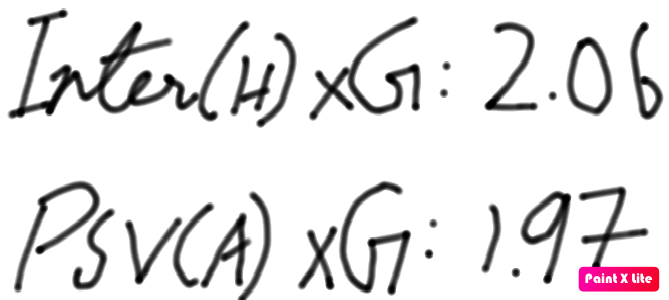 Inter(H) xG: 2.06
PSV(A) xG: 1.97
Paint X Lite